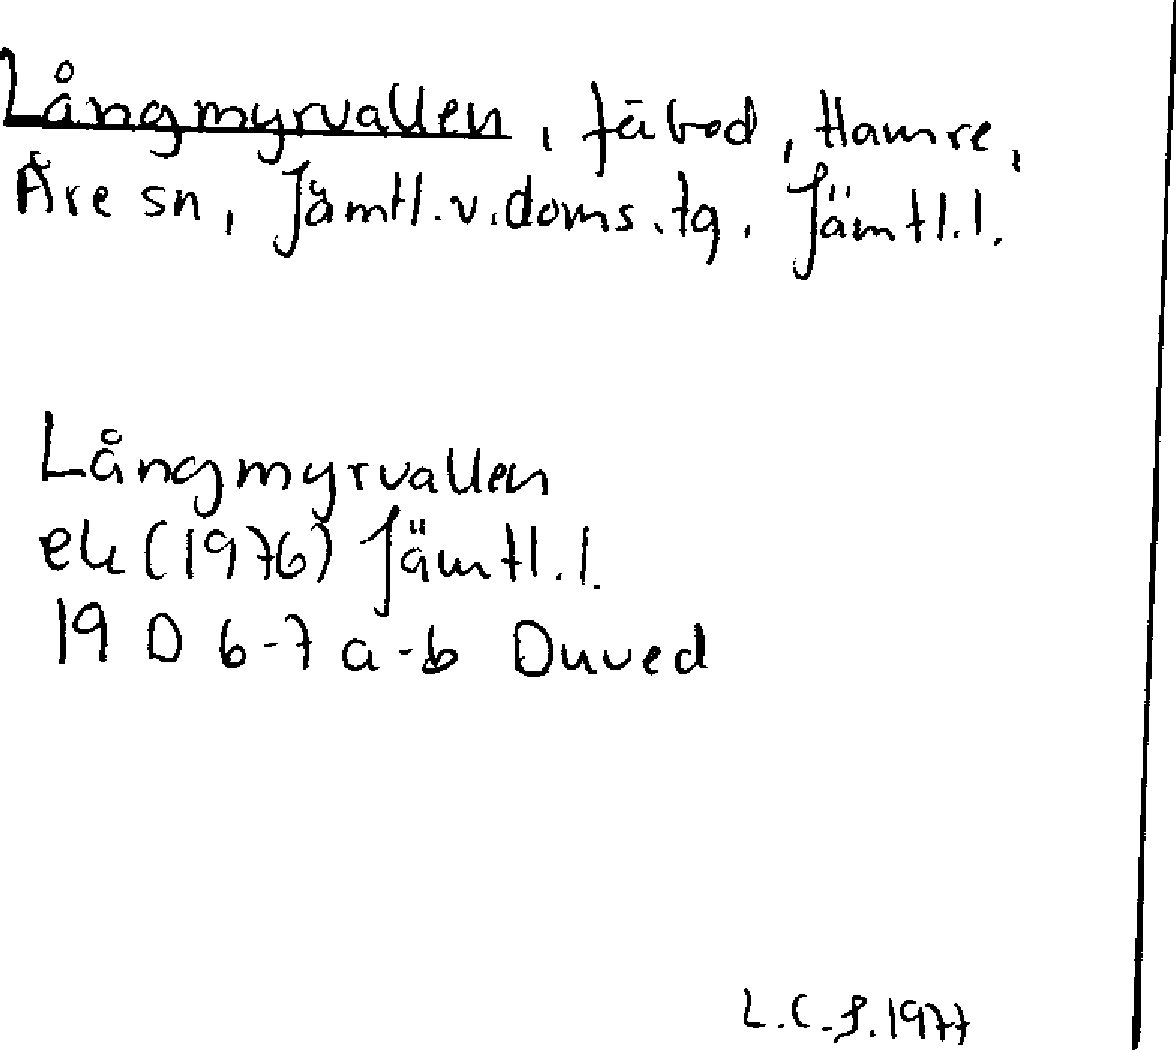 Långmyrvallen, fäbod, Hamre,
Åre sn, Jämtl.v.doms.tg. Jämtl.l.
Långmyrvallen
ek (1976) Jämtl.l.
19 D 6-7 a-b Duved
L.C.S.1977